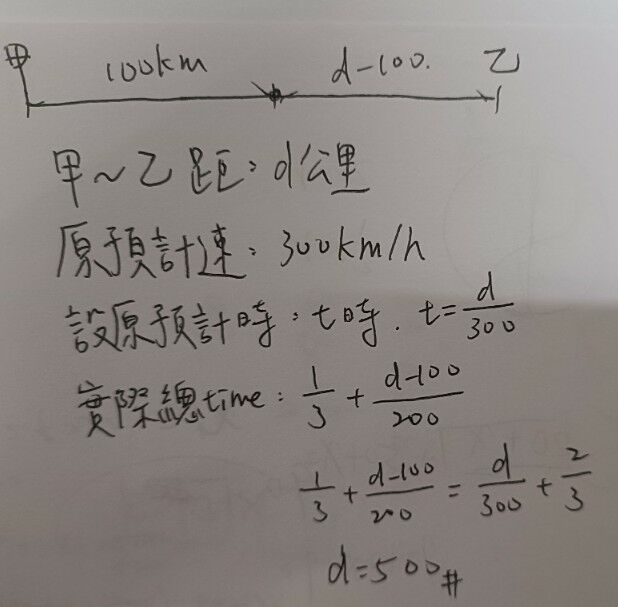 甲 100km d-100. 乙
甲~乙距：d公里
原預計速：300km/h
設原預計時：t時. t=d/300
實際總time：1/3+(d-100)/200
1/3+(d-100)/200=d/300+2/3
d=500#